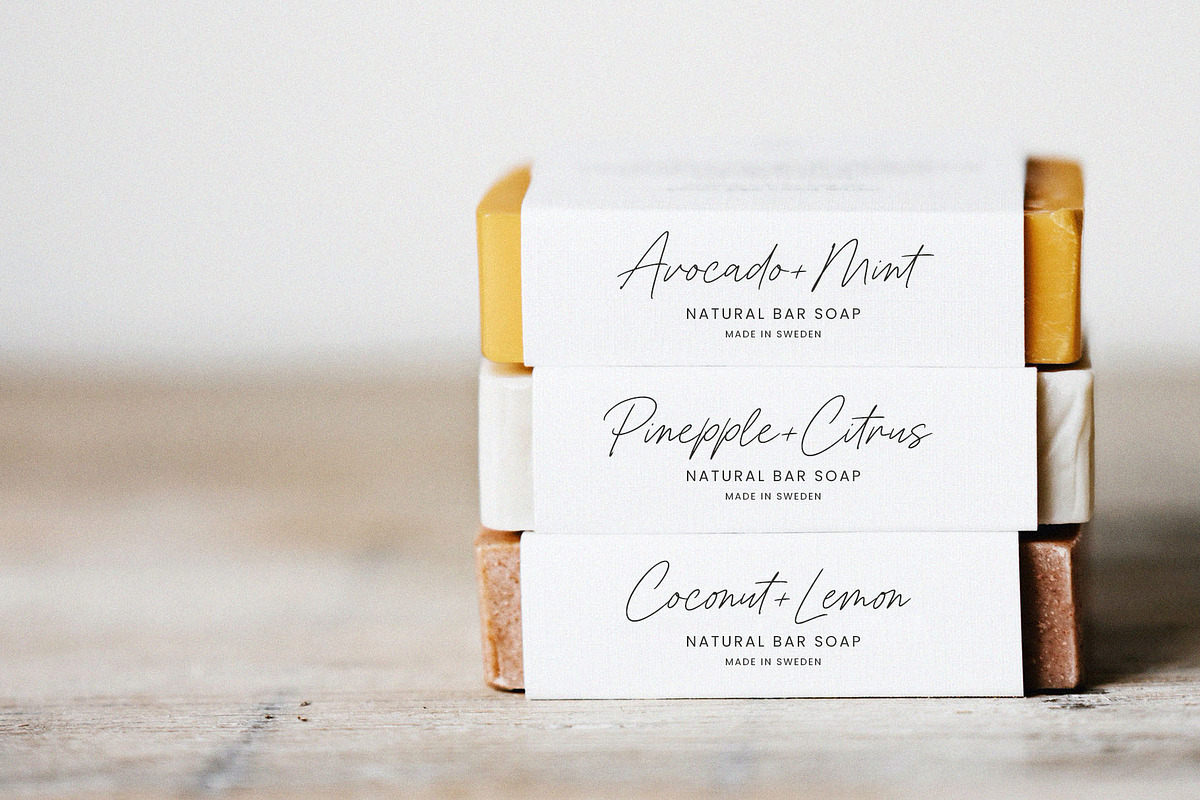 Avocado + Mint
NATURAL BAR SOAP
MADE IN SWEDEN
Pinepple + Citrus
NATURAL BAR SOAP
MADE IN SWEDEN
Coconut + Lemon
NATURAL BAR SOAP
MADE IN SWEDEN